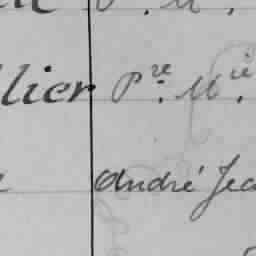 lier Pre. Mie.
André Jea